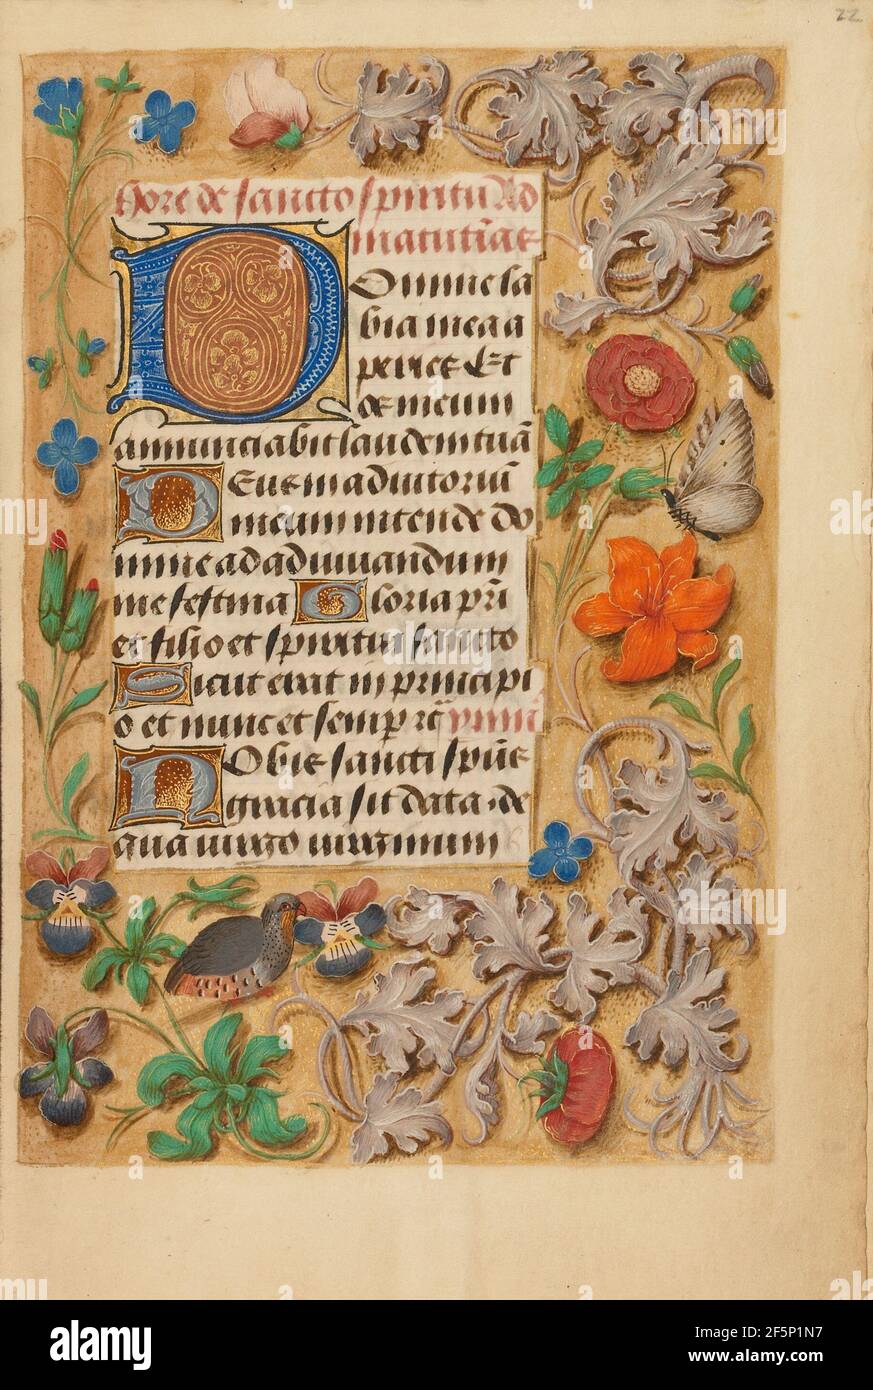 22
Hore de sancto spiritu Ad
matutinas
Domine la
bia mea a
peries Et
os meum
annunciabit laudem tuā
Deus in adiutoriū
meum intende do
mine ad adiuuandum
me festina Gloria pr̄i
et filio et spiritui sancto
Sicut erat in principi
o et nunc et semp rc̄ ymnū
Nobis sancti spūs
gracia sit data · de
qua uirgo uirginum
alamy
Image ID: 2F5P1N7
www.alamy.com